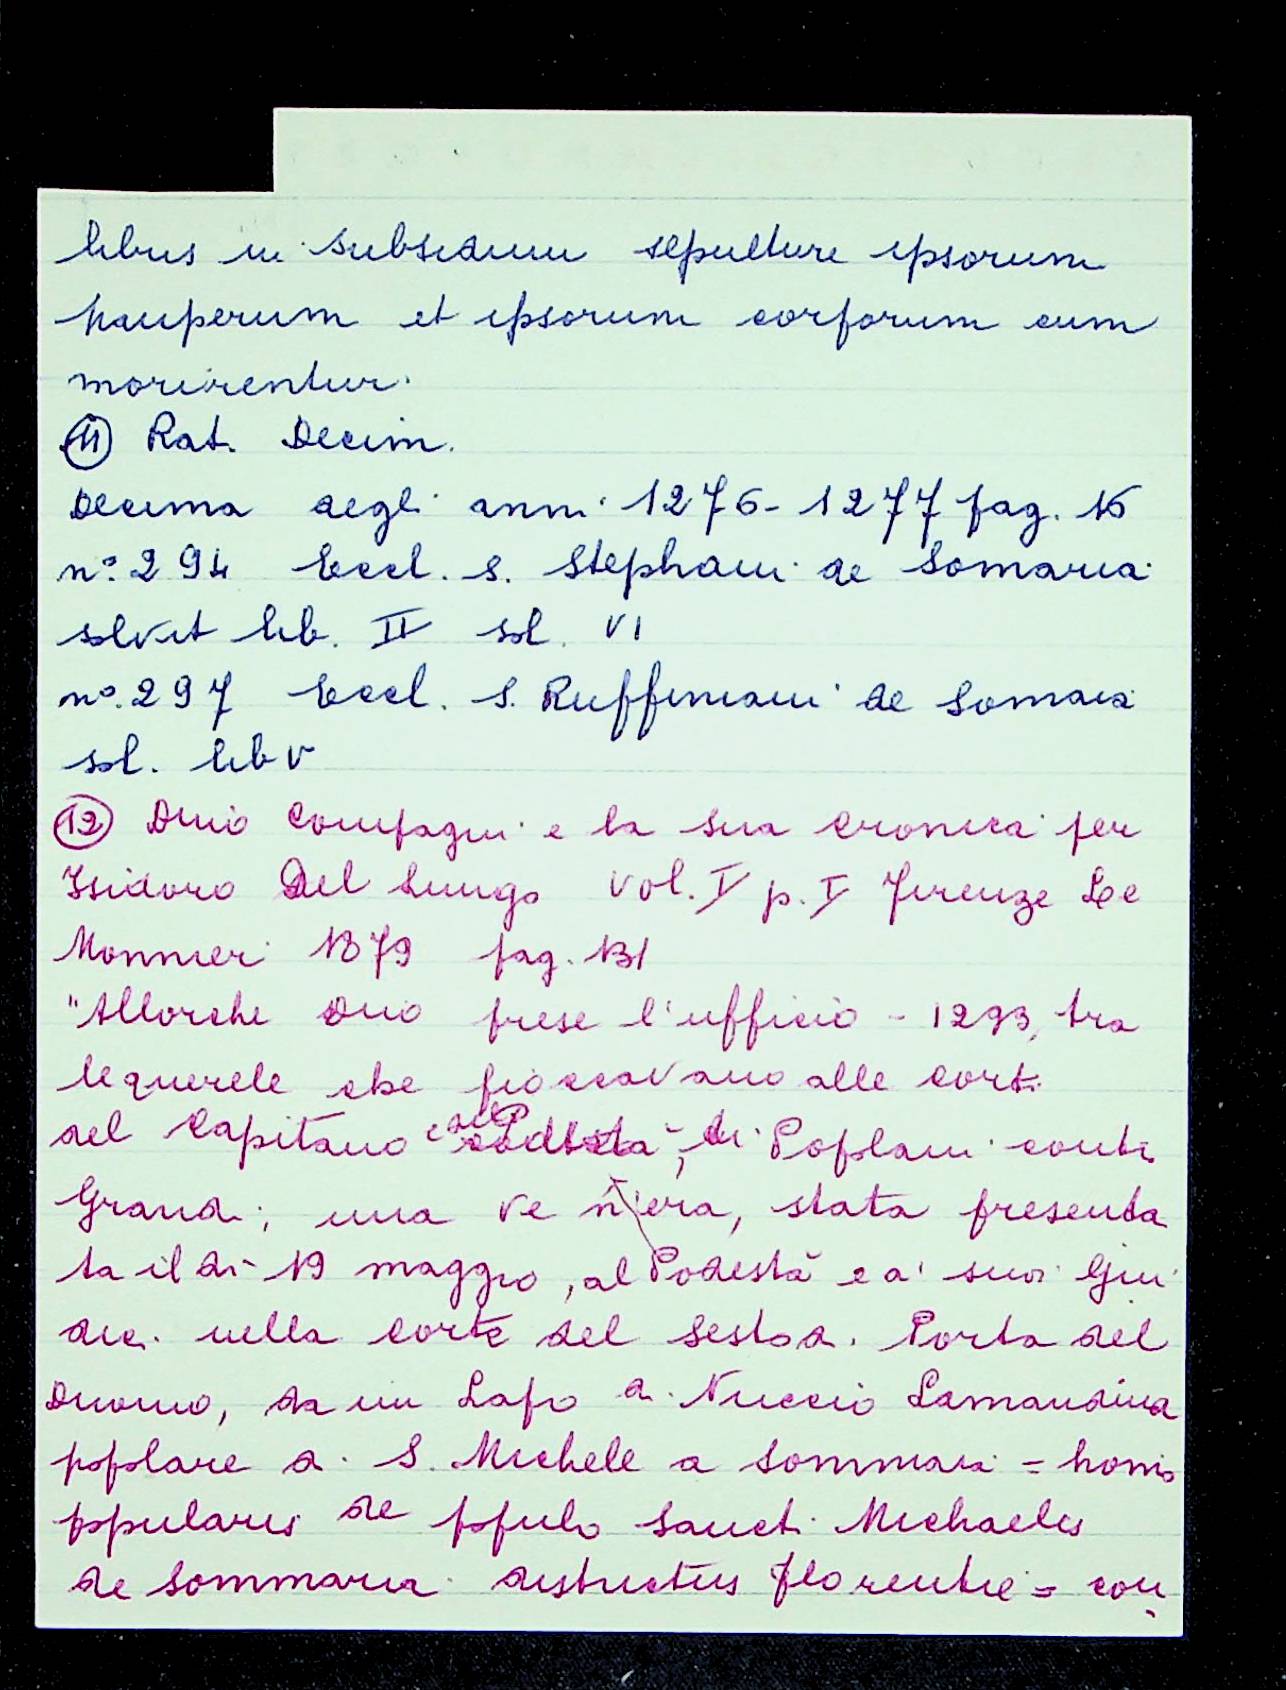 libus in subsidium sepulture ipsorum
pauperum et ipsorum corporum cum
morirentur.
(11) Rat. Decim.
Decima degli anni 1276-1277 pag. 16
n.° 294 Eccl. S. Stephani de Somaria
solvit lib. II sol. VI
n.° 297 Eccl. S. Ruffiniani de Somaia
sol. lib V
(12) Dino Compagni e la sua cronica per
Isidoro Del Lungo vol. I p. I Firenze Le
Monnier 1879 pag. 131
"Allorche Dino prese l'ufficio - 1293, tra
le querele che fioccavano alle corti
del Capitano e del Podestà, di Popolani contro
Grandi; una ve n'era, stata presenta
ta il dì 19 maggio, al Podestà e a' suoi Giu
dici nella corte del Sesto di Porta del
Duomo, da un Lapo di Nuccio Lamandina
popolare di S. Michele a Sommaia = homo
popularis de populo Sancti Michaelis
de Sommaria districtus Florentie = con